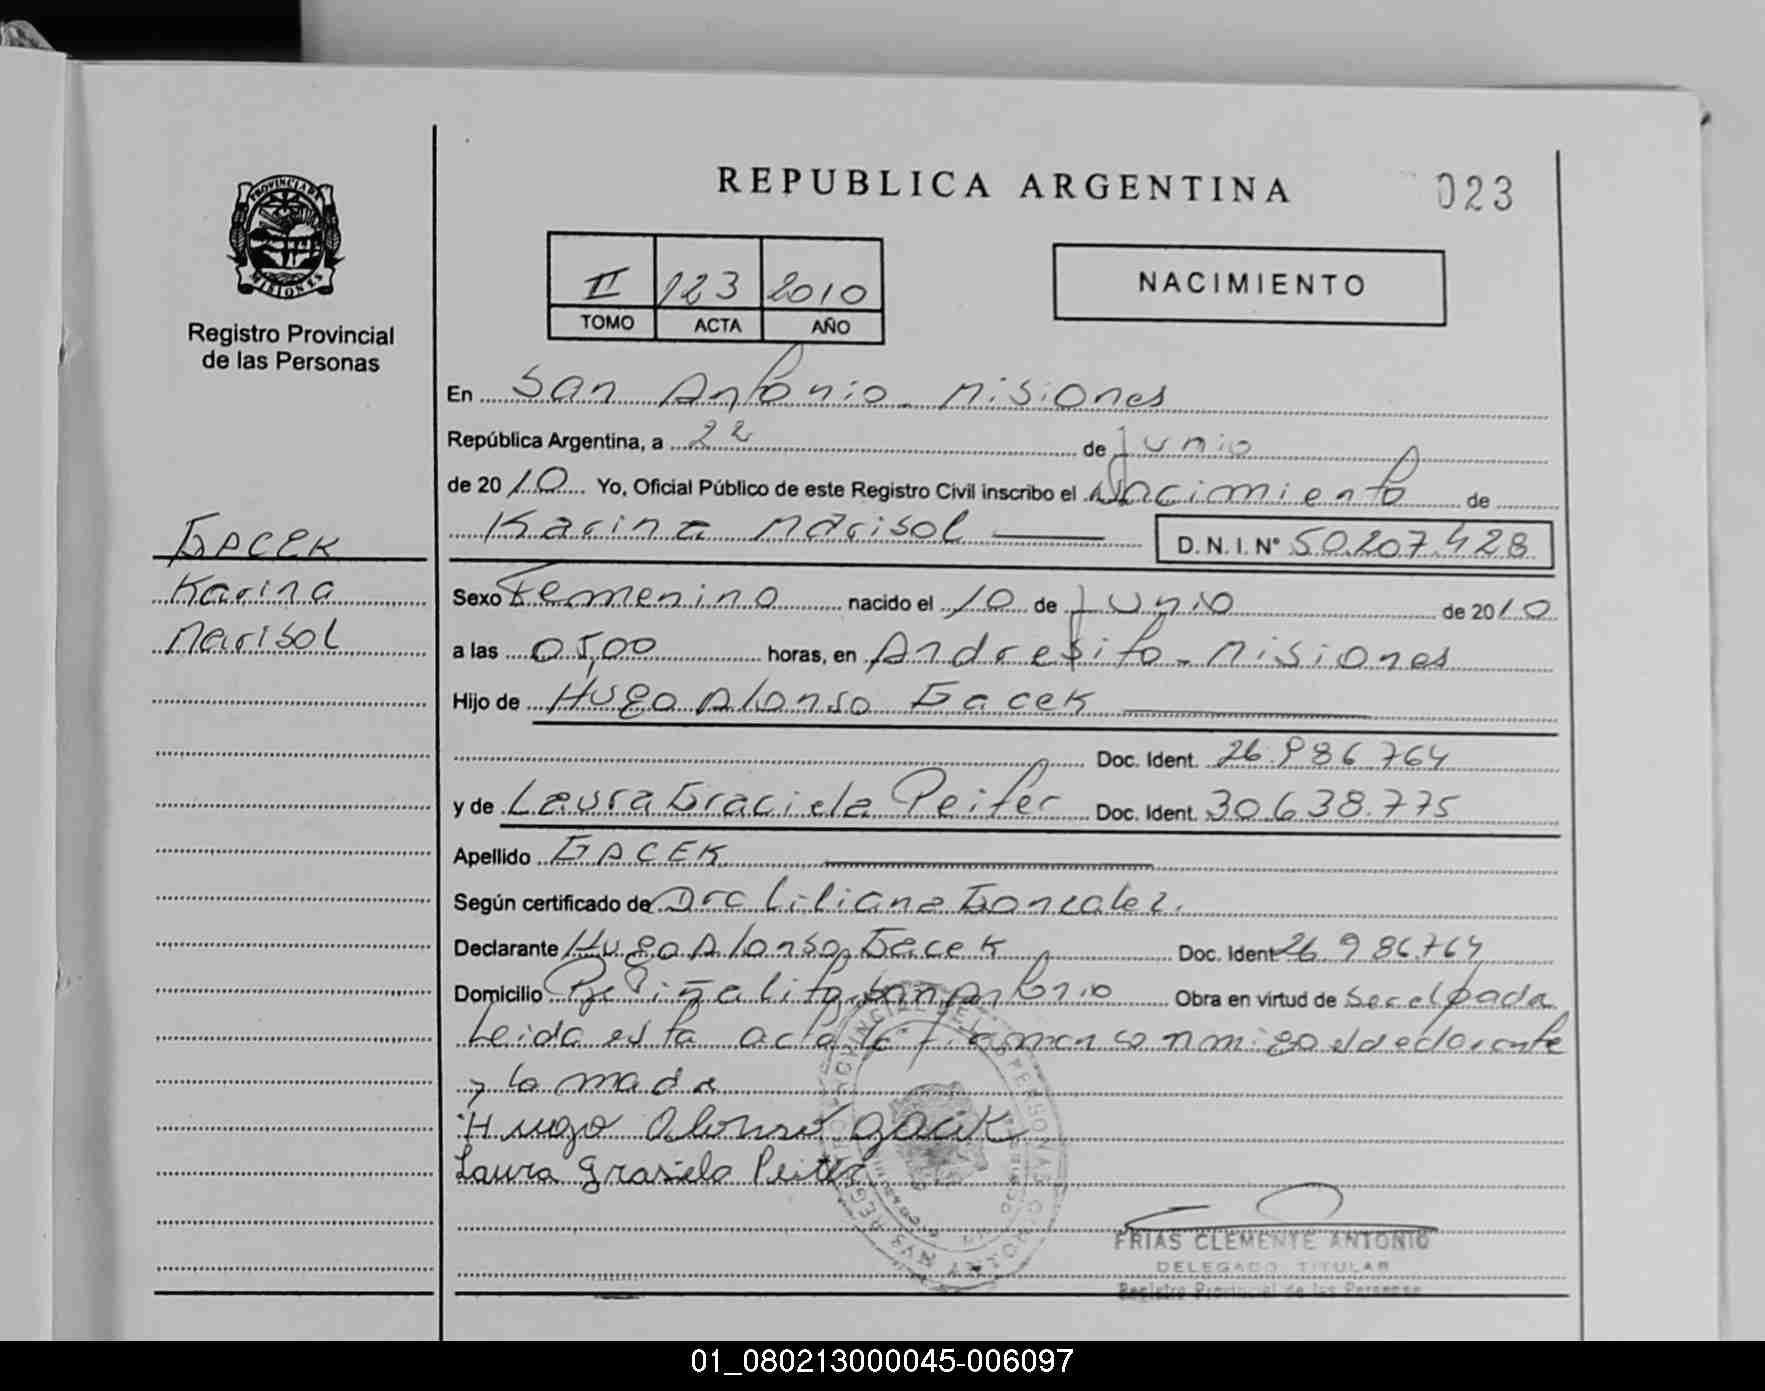 REPUBLICA ARGENTINA
023
PROVINCIA DE
MISIONES
Registro Provincial
de las Personas
II 123 2010
TOMO ACTA AÑO
NACIMIENTO
En San Antonio - Misiones
República Argentina, a 22 de Junio
de 2010 Yo, Oficial Público de este Registro Civil inscribo el Nacimiento de
Karina Marisol D.N.I. Nº 50.207.428
GACEK
Karina
Marisol
Sexo Femenino nacido el 10 de Junio de 2010
a las 05,00 horas, en Andresito - Misiones
Hijo de Hugo Alonso Gacek
Doc. Ident. 26.986.764
y de Laura Graciela Peifer Doc. Ident. 30.638.775
Apellido GACEK
Según certificado de Dra Liliana Gonzalez.
Declarante Hugo Alonso Gacek Doc. Ident 26.986.764
Domicilio San Antonio Obra en virtud de
Leida esta acta la firman conmigo el declarante
y la madre
Hugo Alonso gacek
Laura Grasiela Peifer
FRIAS CLEMENTE ANTONIO
DELEGADO TITULAR
Registro Provincial de las Personas
01_080213000045-006097